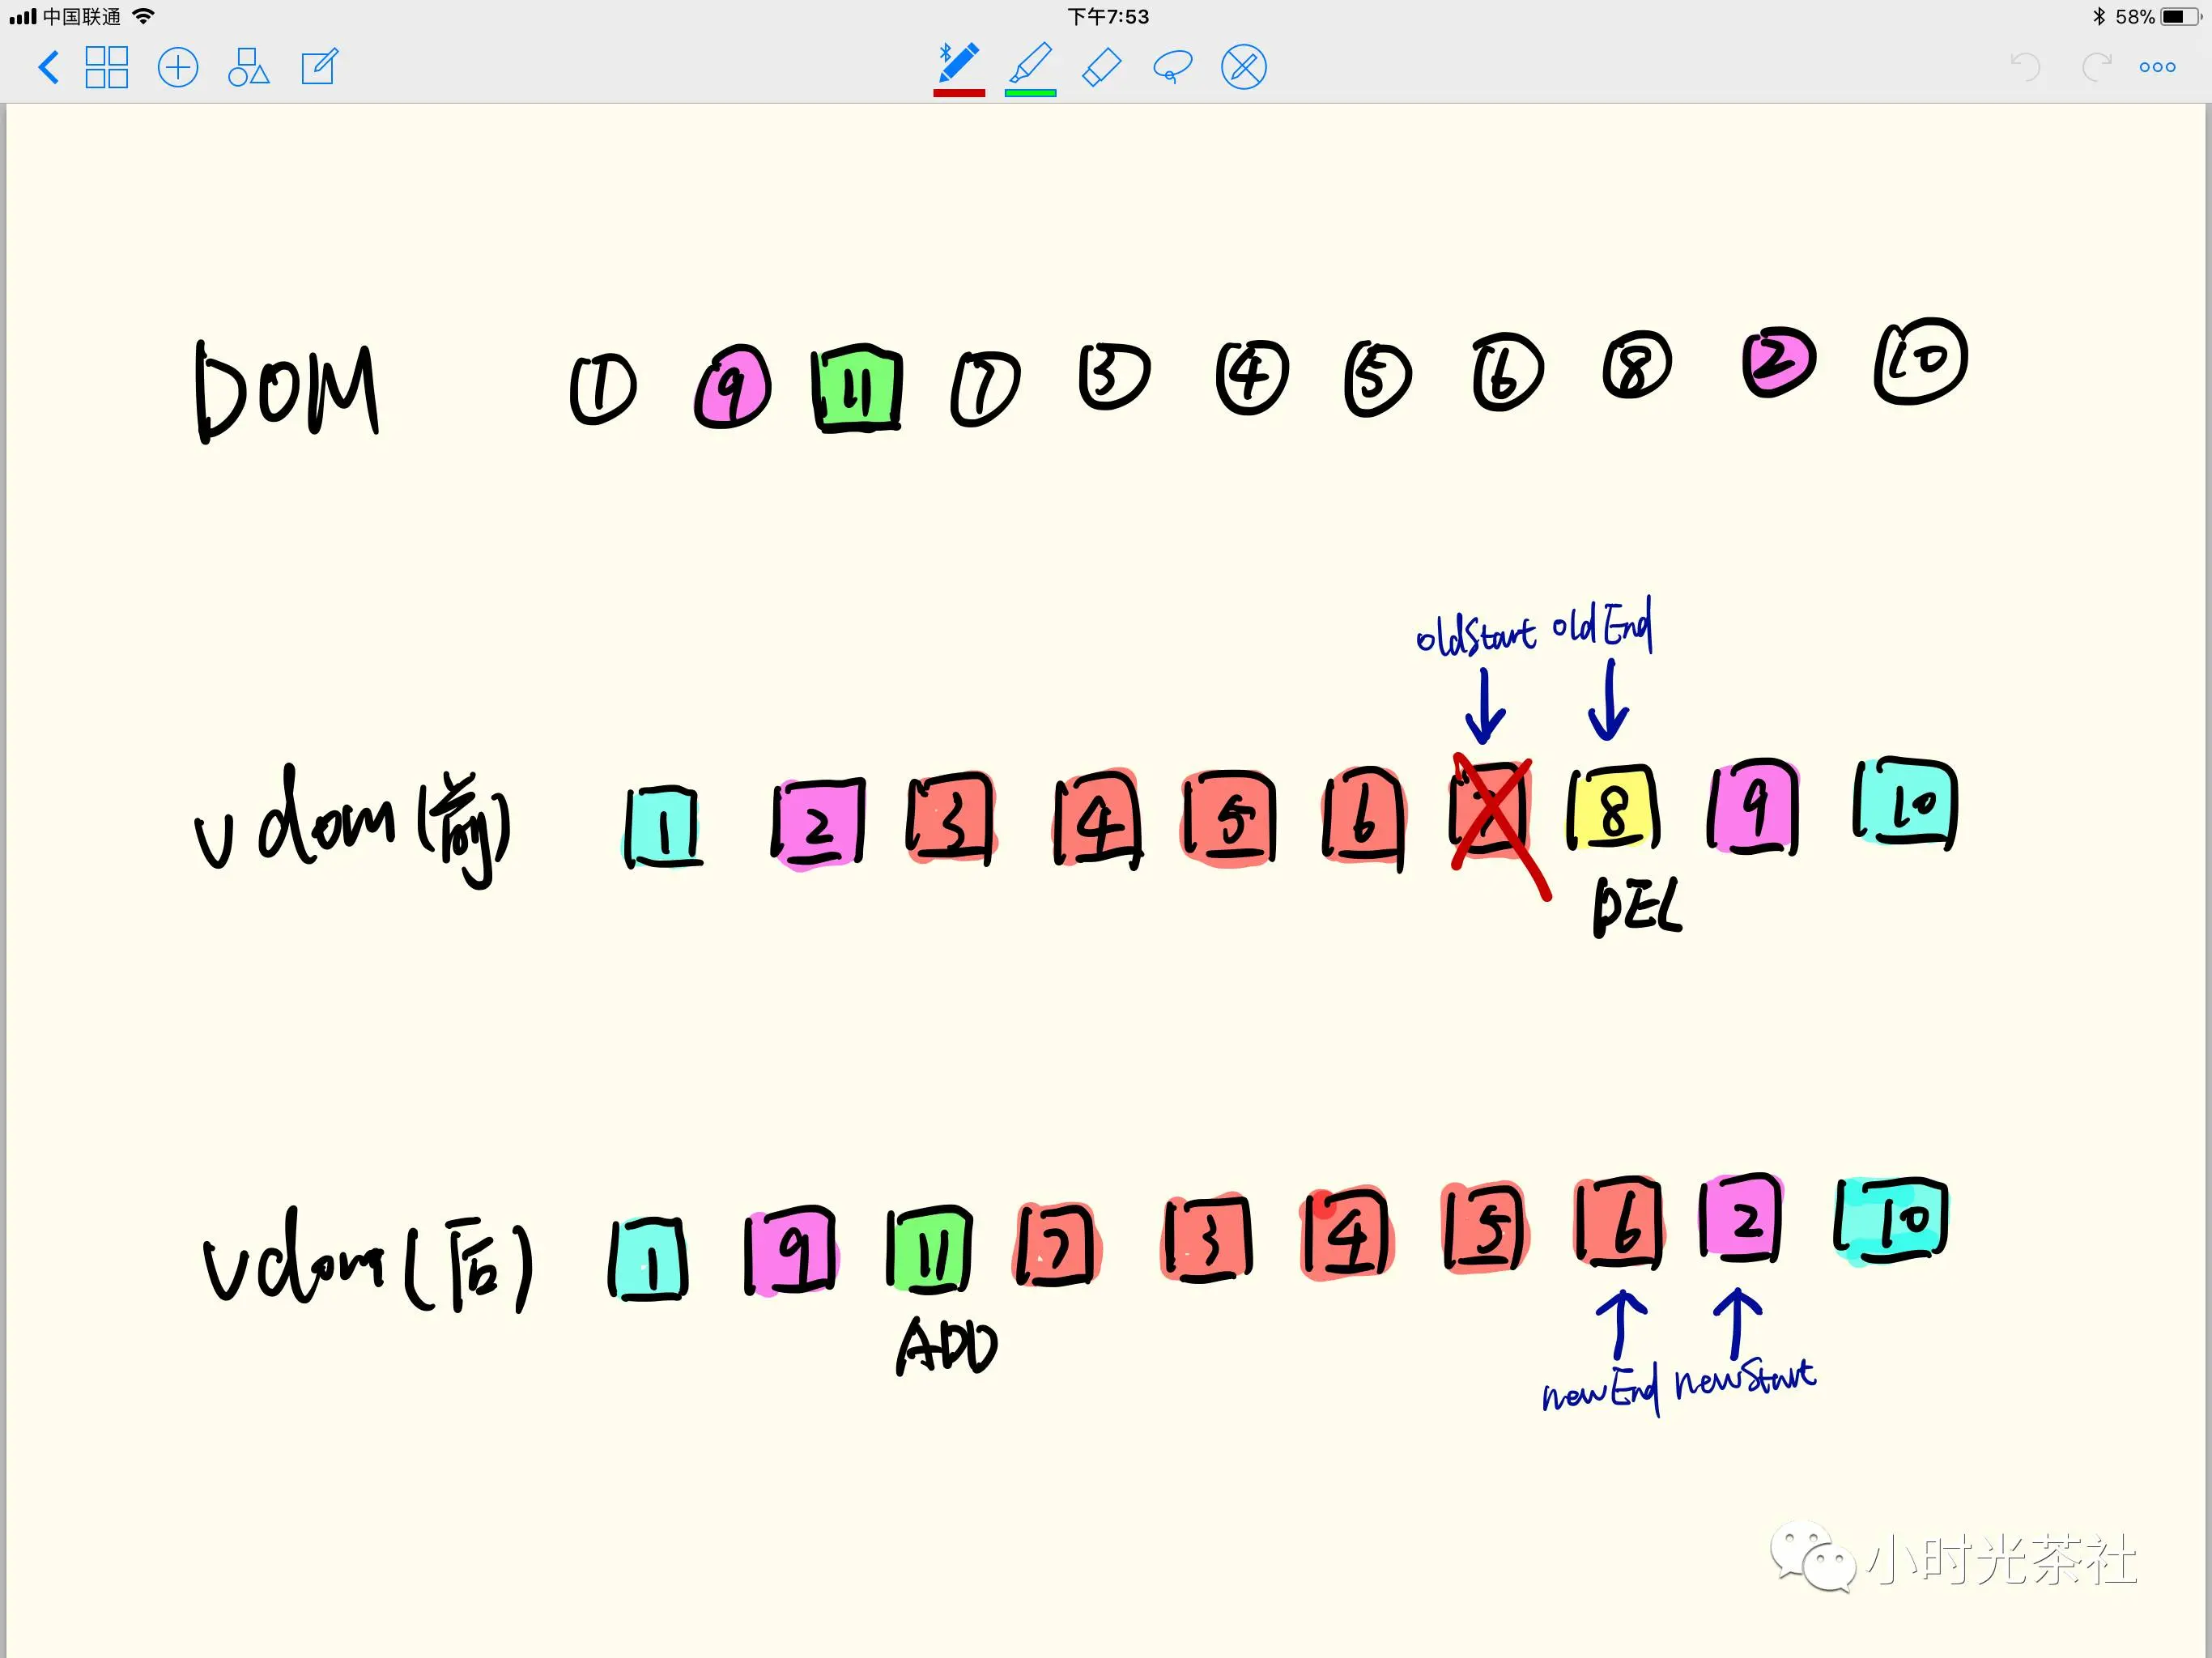 中国联通 下午7:53 58%
DOM 1 9 11 7 3 4 5 6 8 2 10
oldStart oldEnd
vdom(前) 1 2 3 4 5 6 7 8 9 10
DEL
vdom(后) 1 9 11 7 3 4 5 6 2 10
ADD
newEnd newStart
小时光茶社